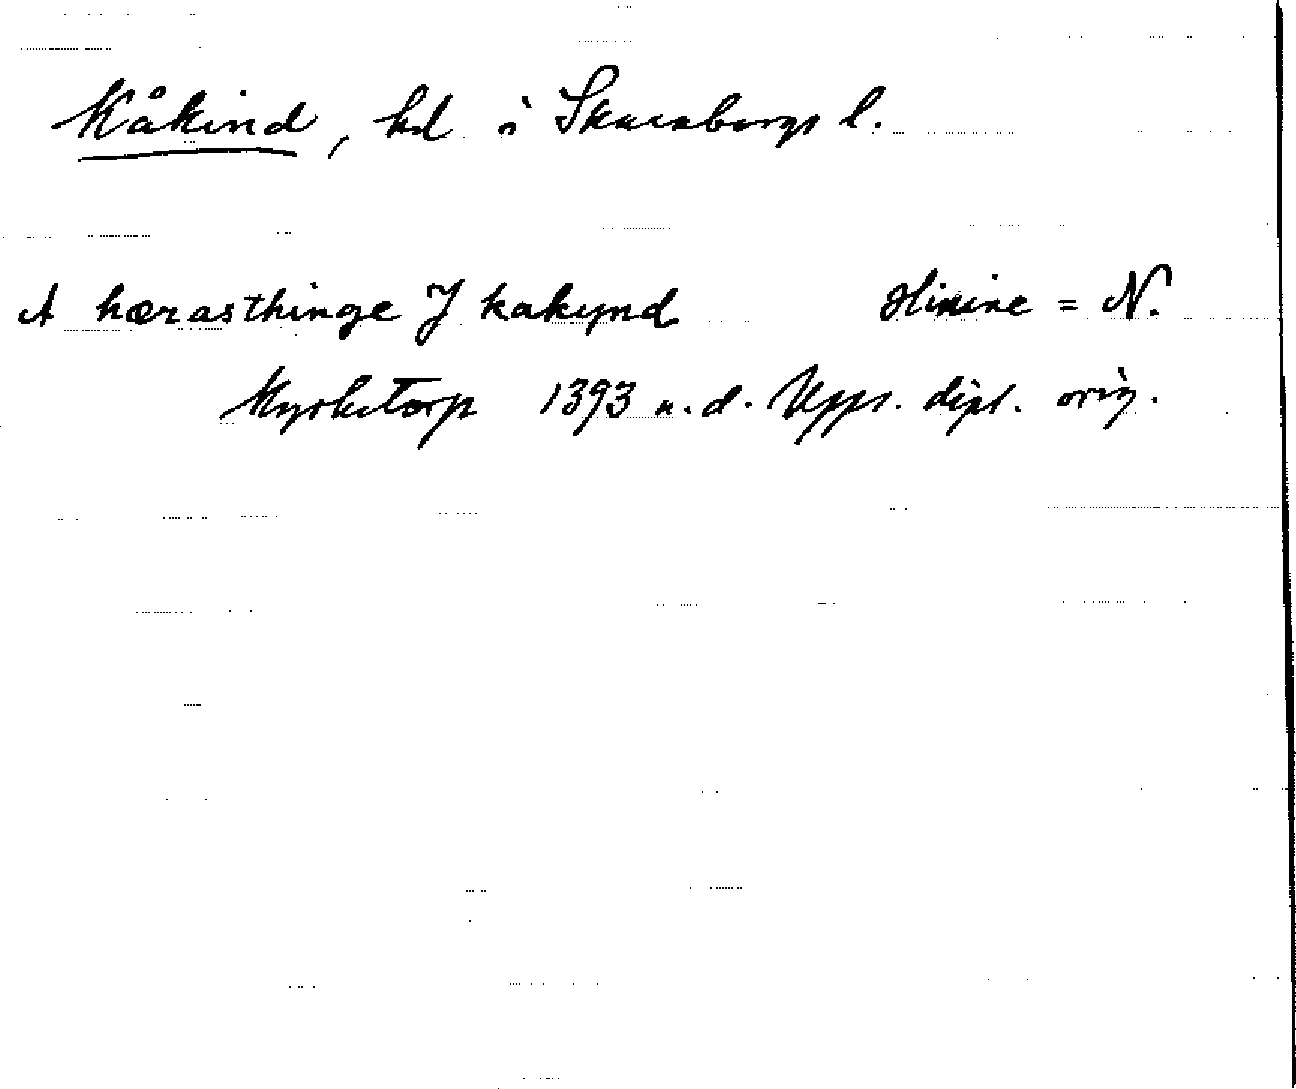 Kåkind, hd i Skaraborgs l.
A hærasthinge J kakynd = N.
Kyrketorp 1393 u.d. Upps. dipl. orig.